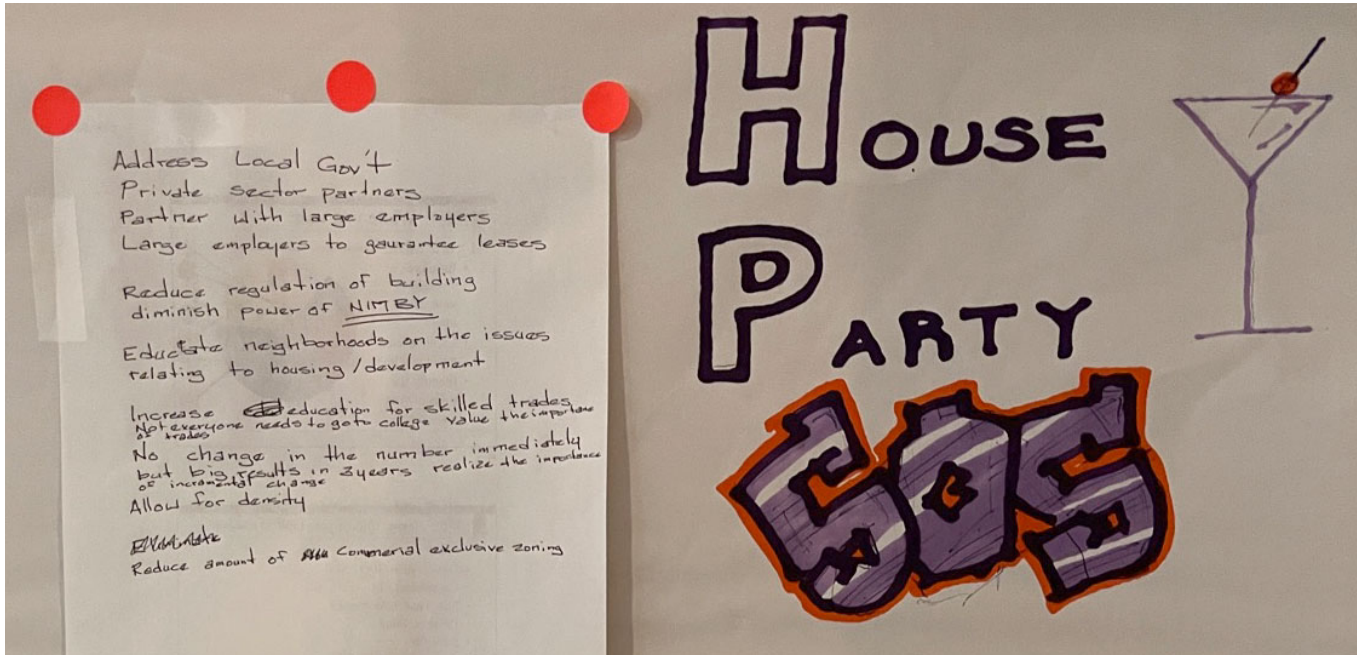 Address Local Gov't
Private sector partners
Partner with large employers
Large employers to gaurantee leases
Reduce regulation of building
diminish power of NIMBY
Eductate neighborhoods on the issues
relating to housing/development
Increase education for skilled trades
Not everyone needs to go to college value the importance
of trades
No change in the number immediately
but big results in 3 years realize the importance
of incramental change
Allow for density
Reduce amount of Commerial exclusive zoning
HOUSE
PARTY
SOS